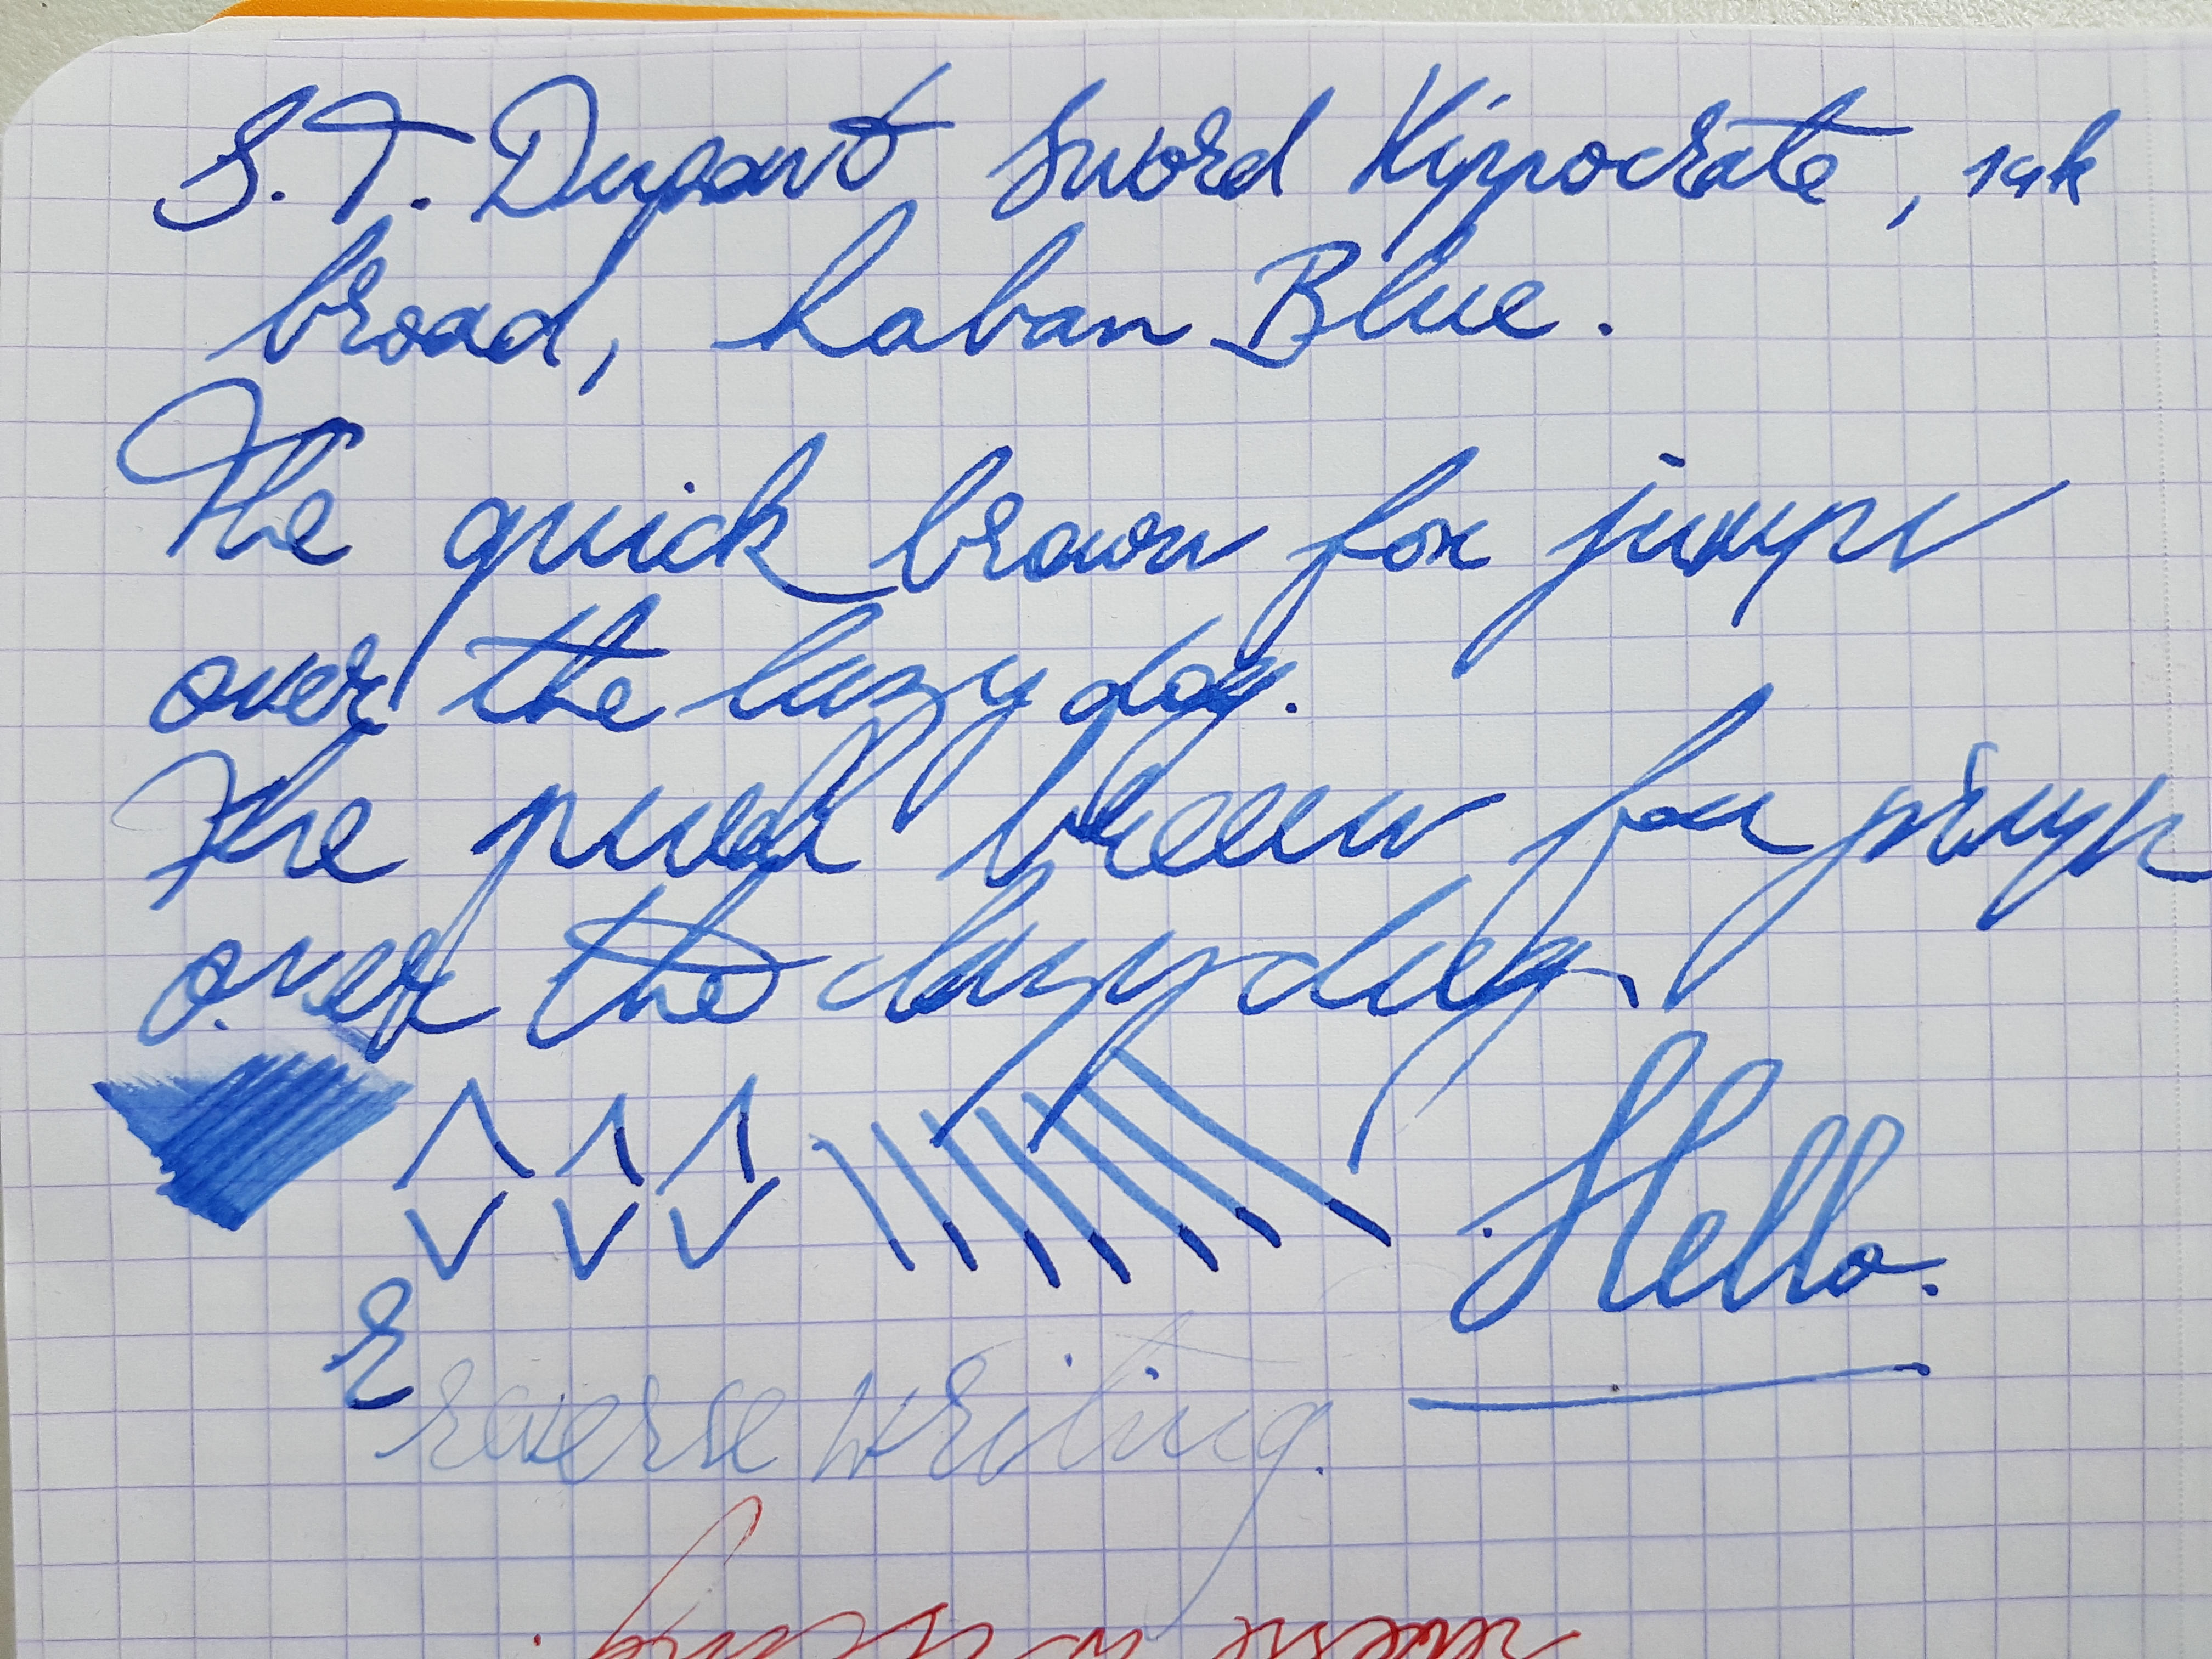 S.T. Dupont Sword Hippocrate, 14k
broad, Laban Blue.
The quick brown fox jumps
over the lazy dog.
The quick brown fox jumps
over the lazy dog.
Hello.
reverse writing.